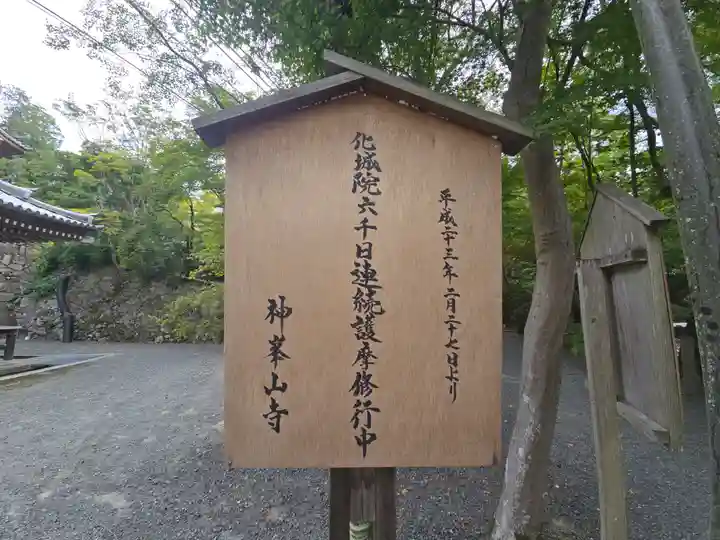 平成二十三年二月二十七日より
化城院六千日連続護摩修行中
神峯山寺